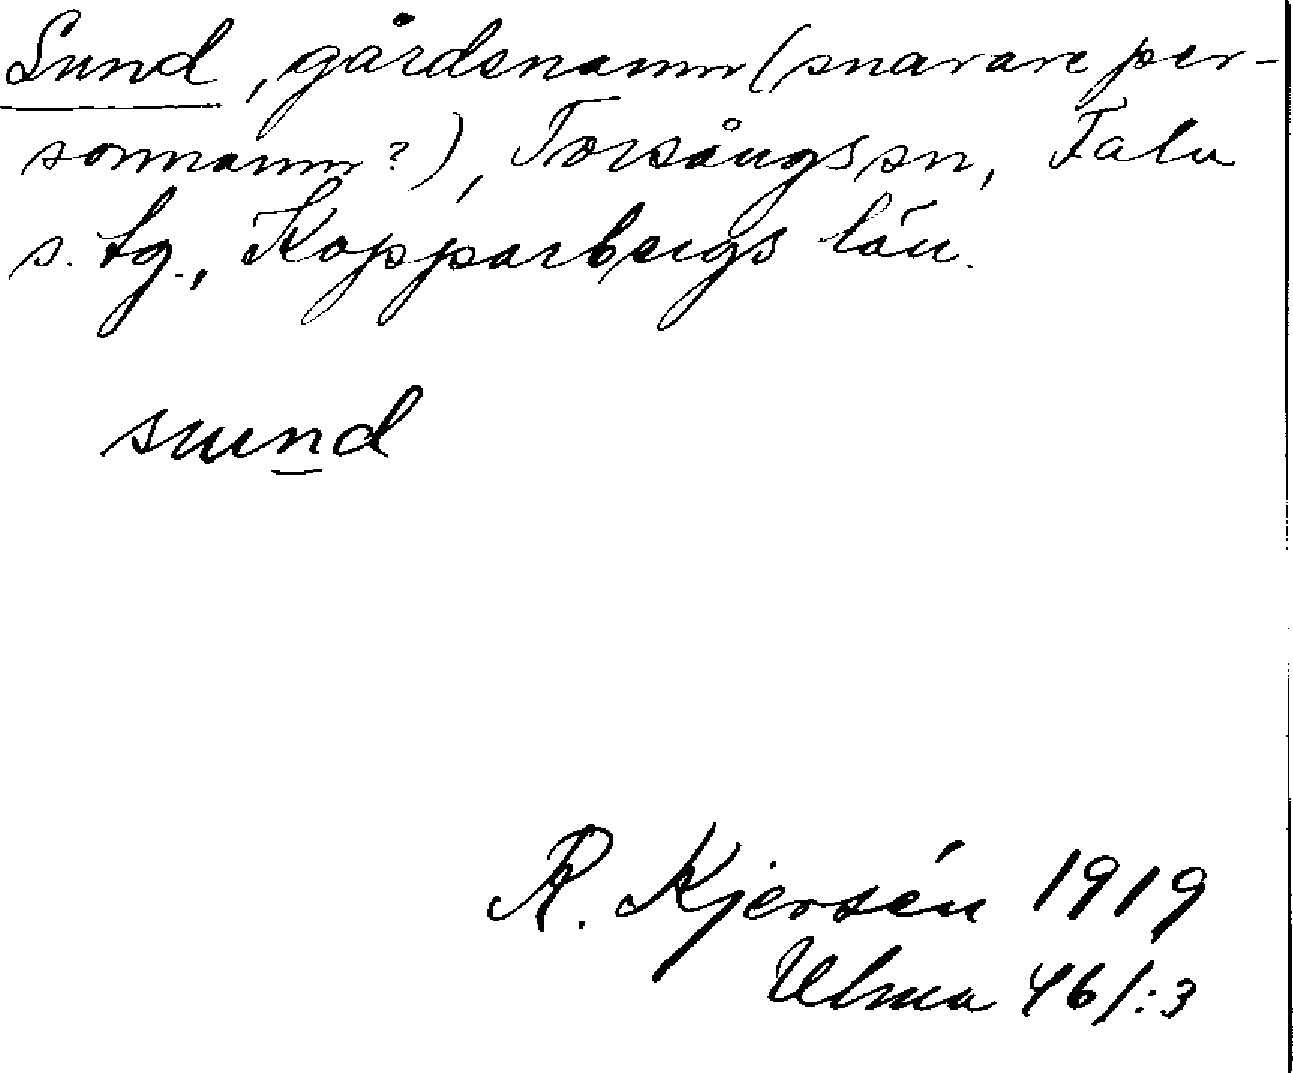 Sund, gårdsnamn (snarare per-
sonnamn?), Torsångs sn, Falu
s. tg., Kopparbergs län.
sund
R. Kjersén 1919
Ulma 461:3